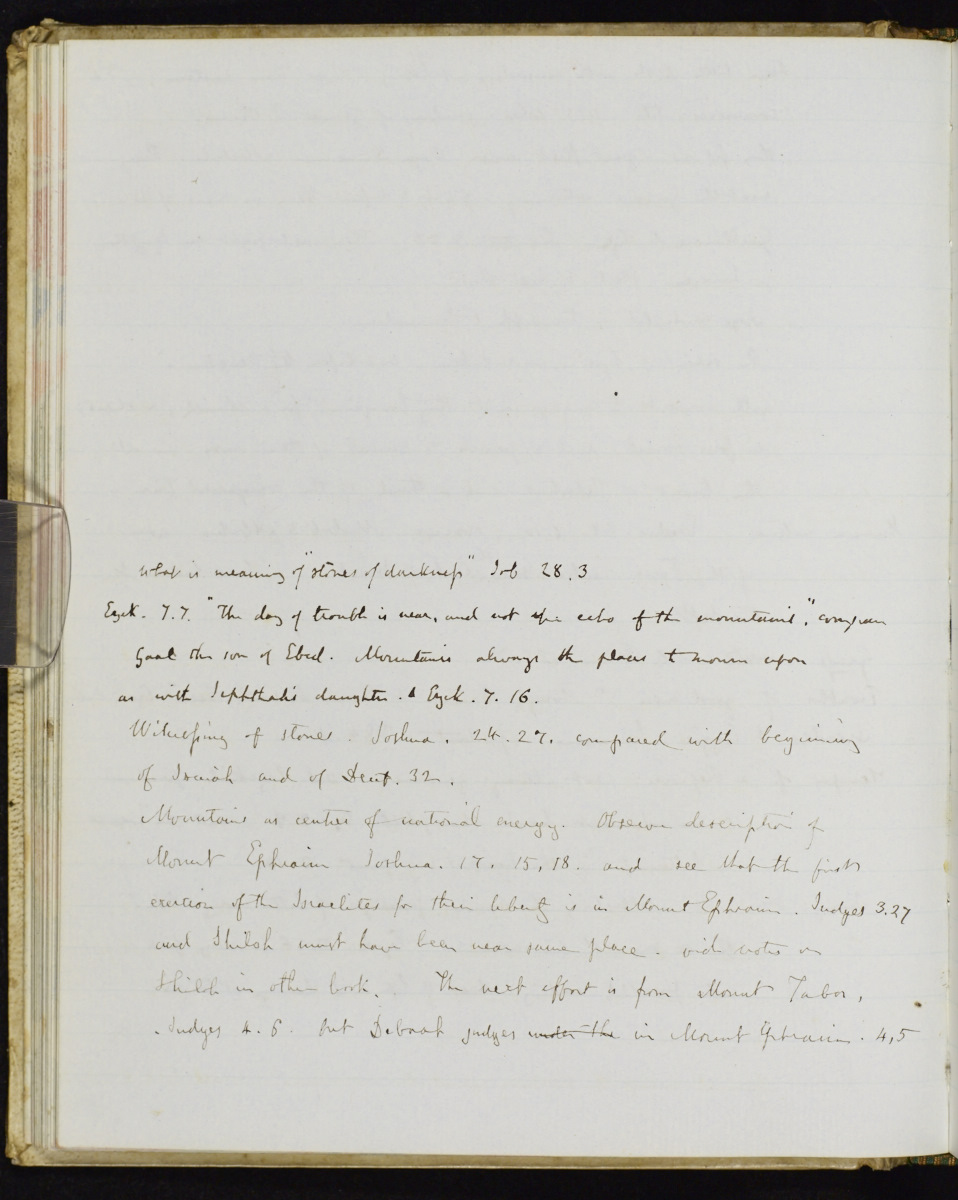 what is meaning of "stones of darkness" Job 28.3
Ezek. 7.7. "The day of trouble is near, and not the echo of the mountains", compare
Gaal the son of Ebed. Mountains always the places to mourn upon
as with Jephthah's daughter. Ezek. 7. 16.
Witnessing of stones. Joshua. 24. 27. compared with beginning
of Isaiah and of Deut. 32.
Mountains as centres of national energy. Observe description of
Mount Ephraim Joshua. 17. 15, 18. and see that the first
exertion of the Israelites for their liberty is in Mount Ephraim. Judges 3.27
and Shiloh must have been near same place. vide notes on
Shiloh in other book. The next effort is from Mount Tabor,
Judges 4. 6. but Deborah judges under the in Mount Ephraim. 4,5